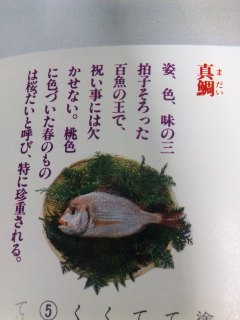 真鯛
まだい
姿、色、味の三
拍子そろった
百魚の王で、
祝い事には欠
かせない。桃色
に色づいた春のもの
は桜だいと呼び、特に珍重される。
て
て
く
く
⑤
て